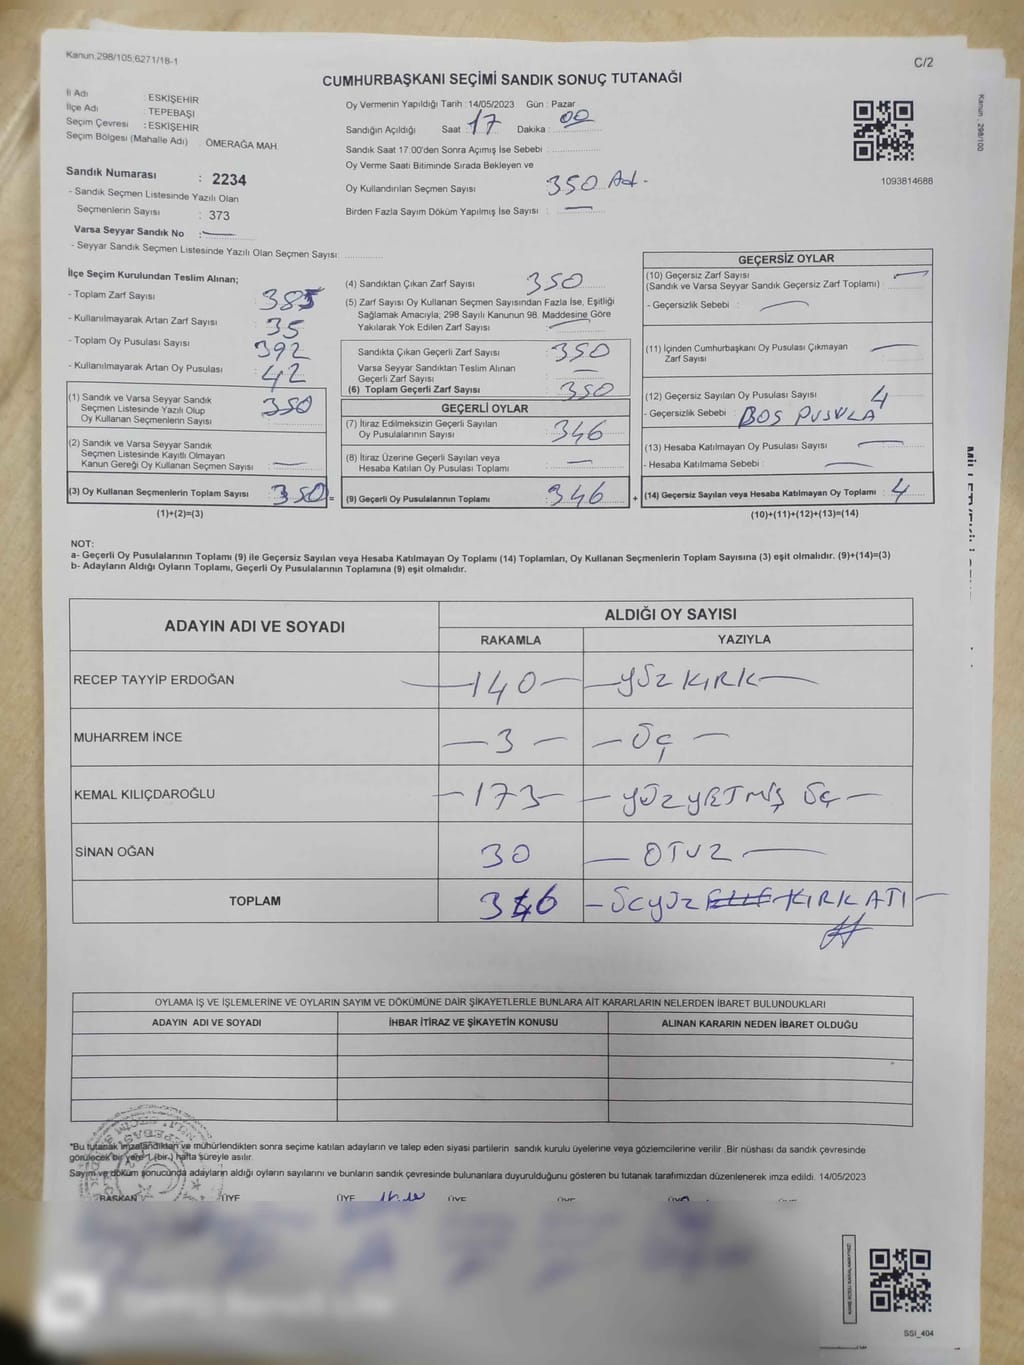 Kanun.298/105;6271/18-1
C/2
CUMHURBAŞKANI SEÇİMİ SANDIK SONUÇ TUTANAĞI
İl Adı : ESKİŞEHİR
İlçe Adı : TEPEBAŞI
Seçim Çevresi : ESKİŞEHİR
Seçim Bölgesi (Mahalle Adı) : ÖMERAĞA MAH.
Sandık Numarası : 2234
- Sandık Seçmen Listesinde Yazılı Olan
Seçmenlerin Sayısı : 373
Varsa Seyyar Sandık No :
- Seyyar Sandık Seçmen Listesinde Yazılı Olan Seçmen Sayısı:
Oy Vermenin Yapıldığı Tarih : 14/05/2023 Gün : Pazar
Sandığın Açıldığı Saat : 17 Dakika : 00
Sandık Saat 17.00'den Sonra Açımış İse Sebebi :
Oy Verme Saati Bitiminde Sırada Bekleyen ve
Oy Kullandırılan Seçmen Sayısı 350 Ad-
Birden Fazla Sayım Döküm Yapılmış İse Sayısı : —
1093814686
Kanun 298/100
İlçe Seçim Kurulundan Teslim Alınan;
- Toplam Zarf Sayısı 385
- Kullanılmayarak Artan Zarf Sayısı : 35
- Toplam Oy Pusulası Sayısı 392
- Kullanılmayarak Artan Oy Pusulası : 42
(1) Sandık ve Varsa Seyyar Sandık
Seçmen Listesinde Yazılı Olup
Oy Kullanan Seçmenlerin Sayısı : 350
(2) Sandık ve Varsa Seyyar Sandık
Seçmen Listesinde Kayıtlı Olmayan
Kanun Gereği Oy Kullanan Seçmen Sayısı : —
(3) Oy Kullanan Seçmenlerin Toplam Sayısı : 350 =
(1)+(2)=(3)
(4) Sandıktan Çıkan Zarf Sayısı : 350
(5) Zarf Sayısı Oy Kullanan Seçmen Sayısından Fazla İse, Eşitliği
Sağlamak Amacıyla; 298 Sayılı Kanunun 98. Maddesine Göre
Yakılarak Yok Edilen Zarf Sayısı : —
Sandıkta Çıkan Geçerli Zarf Sayısı : 350
Varsa Seyyar Sandıktan Teslim Alınan
Geçerli Zarf Sayısı : —
(6) Toplam Geçerli Zarf Sayısı : 350
GEÇERLİ OYLAR
(7) İtiraz Edilmeksizin Geçerli Sayılan
Oy Pusulalarının Sayısı : 346
(8) İtiraz Üzerine Geçerli Sayılan veya
Hesaba Katılan Oy Pusulası Toplamı : —
(9) Geçerli Oy Pusulalarının Toplamı : 346 +
GEÇERSİZ OYLAR
(10) Geçersiz Zarf Sayısı
(Sandık ve Varsa Seyyar Sandık Geçersiz Zarf Toplamı) : —
- Geçersizlik Sebebi : —
(11) İçinden Cumhurbaşkanı Oy Pusulası Çıkmayan
Zarf Sayısı : —
(12) Geçersiz Sayılan Oy Pusulası Sayısı : 4
- Geçersizlik Sebebi : BOŞ PUSULA
(13) Hesaba Katılmayan Oy Pusulası Sayısı : —
- Hesaba Katılmama Sebebi : —
(14) Geçersiz Sayılan veya Hesaba Katılmayan Oy Toplamı : 4
(10)+(11)+(12)+(13)=(14)
NOT:
a- Geçerli Oy Pusulalarının Toplamı (9) ile Geçersiz Sayılan veya Hesaba Katılmayan Oy Toplamı (14) Toplamları, Oy Kullanan Seçmenlerin Toplam Sayısına (3) eşit olmalıdır. (9)+(14)=(3)
b- Adayların Aldığı Oyların Toplamı, Geçerli Oy Pusulalarının Toplamına (9) eşit olmalıdır.
ADAYIN ADI VE SOYADI
ALDIĞI OY SAYISI
RAKAMLA YAZIYLA
RECEP TAYYİP ERDOĞAN —140— —YÜZ KIRK—
MUHARREM İNCE —3— —ÜÇ—
KEMAL KILIÇDAROĞLU —173— —YÜZ YETMİŞ ÜÇ—
SİNAN OĞAN 30 —OTUZ—
TOPLAM 346 —ÜÇYÜZ KIRK ATI—
OYLAMA İŞ VE İŞLEMLERİNE VE OYLARIN SAYIM VE DÖKÜMÜNE DAİR ŞİKAYETLERLE BUNLARA AİT KARARLARIN NELERDEN İBARET BULUNDUKLARI
ADAYIN ADI VE SOYADI İHBAR İTİRAZ VE ŞİKAYETİN KONUSU ALINAN KARARIN NEDEN İBARET OLDUĞU
*Bu tutanak imzalandıktan ve mühürlendikten sonra seçime katılan adayların ve talep eden siyasi partilerin sandık kurulu üyelerine veya gözlemcilerine verilir. Bir nüshası da sandık çevresinde
görülecek bir yere 7 (bir.) hafta süreyle asılır.
Sayım ve döküm sonucunda adayların aldığı oyların sayılarını ve bunların sandık çevresinde bulunanlara duyurulduğunu gösteren bu tutanak tarafımızdan düzenlenerek imza edildi. 14/05/2023
BAŞKAN ÜYE ÜYE ÜYE ÜYE ÜYE
SSI_404